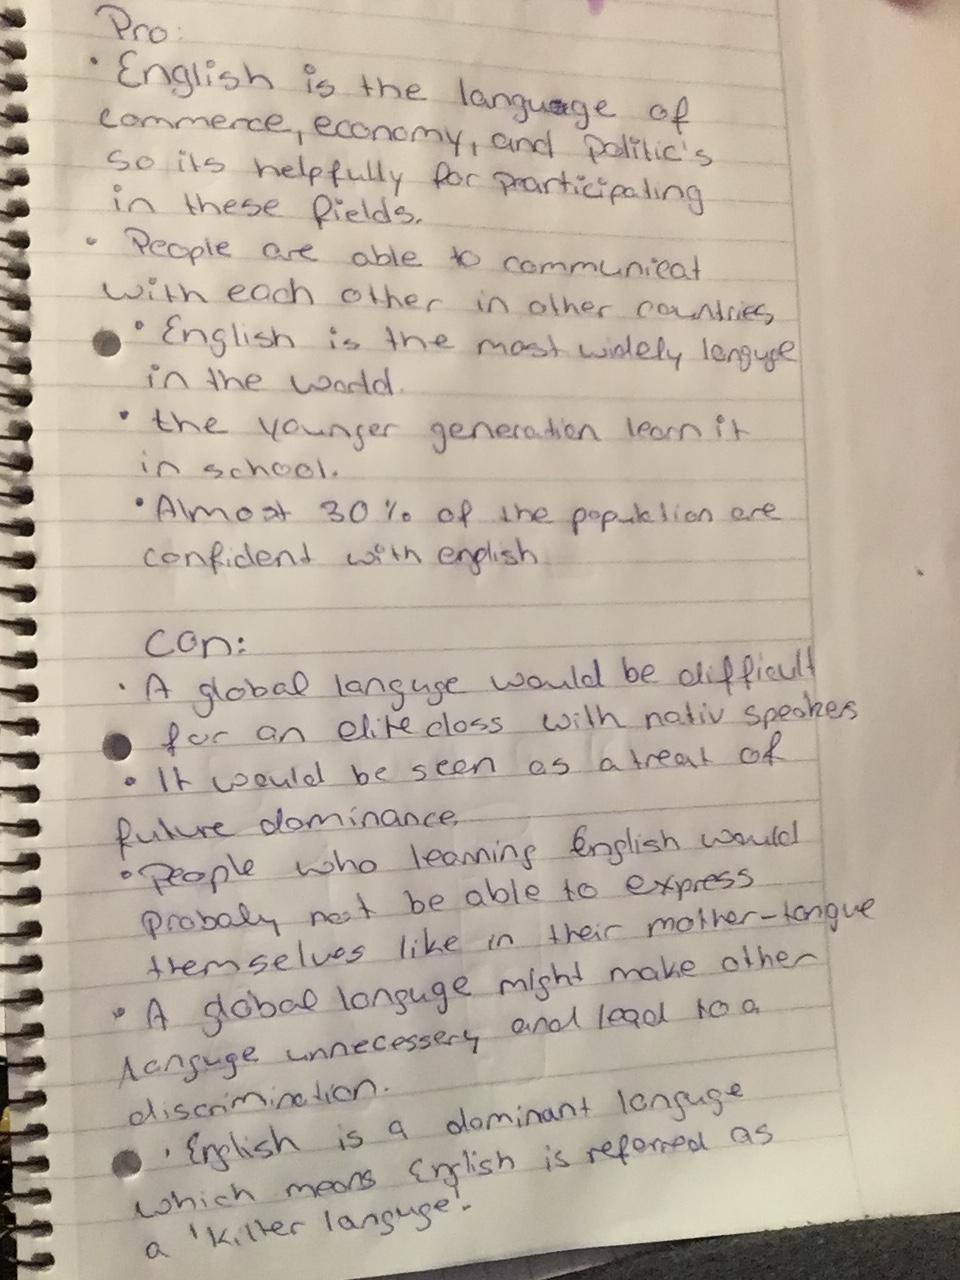 Pro:
• English is the language of
commerce, economy, and politic's
so its helpfully for prarticipating
in these fields.
• People are able to communicat
with each other in other countries
• English is the most widely languge
in the world.
• the younger generation learn it
in school.
• Almost 30% of the population are
confident with english
Con:
• A global languge would be difficult
for an elite class with nativ speakers
• It would be seen as a treat of
future dominance
• People who learning English would
Probaly not be able to express
themselves like in their mother-tongue
• A global languge might make other
languge unnecessery and lead to a
discrimination.
• English is a dominant languge
which means English is referred as
a 'killer languge'.